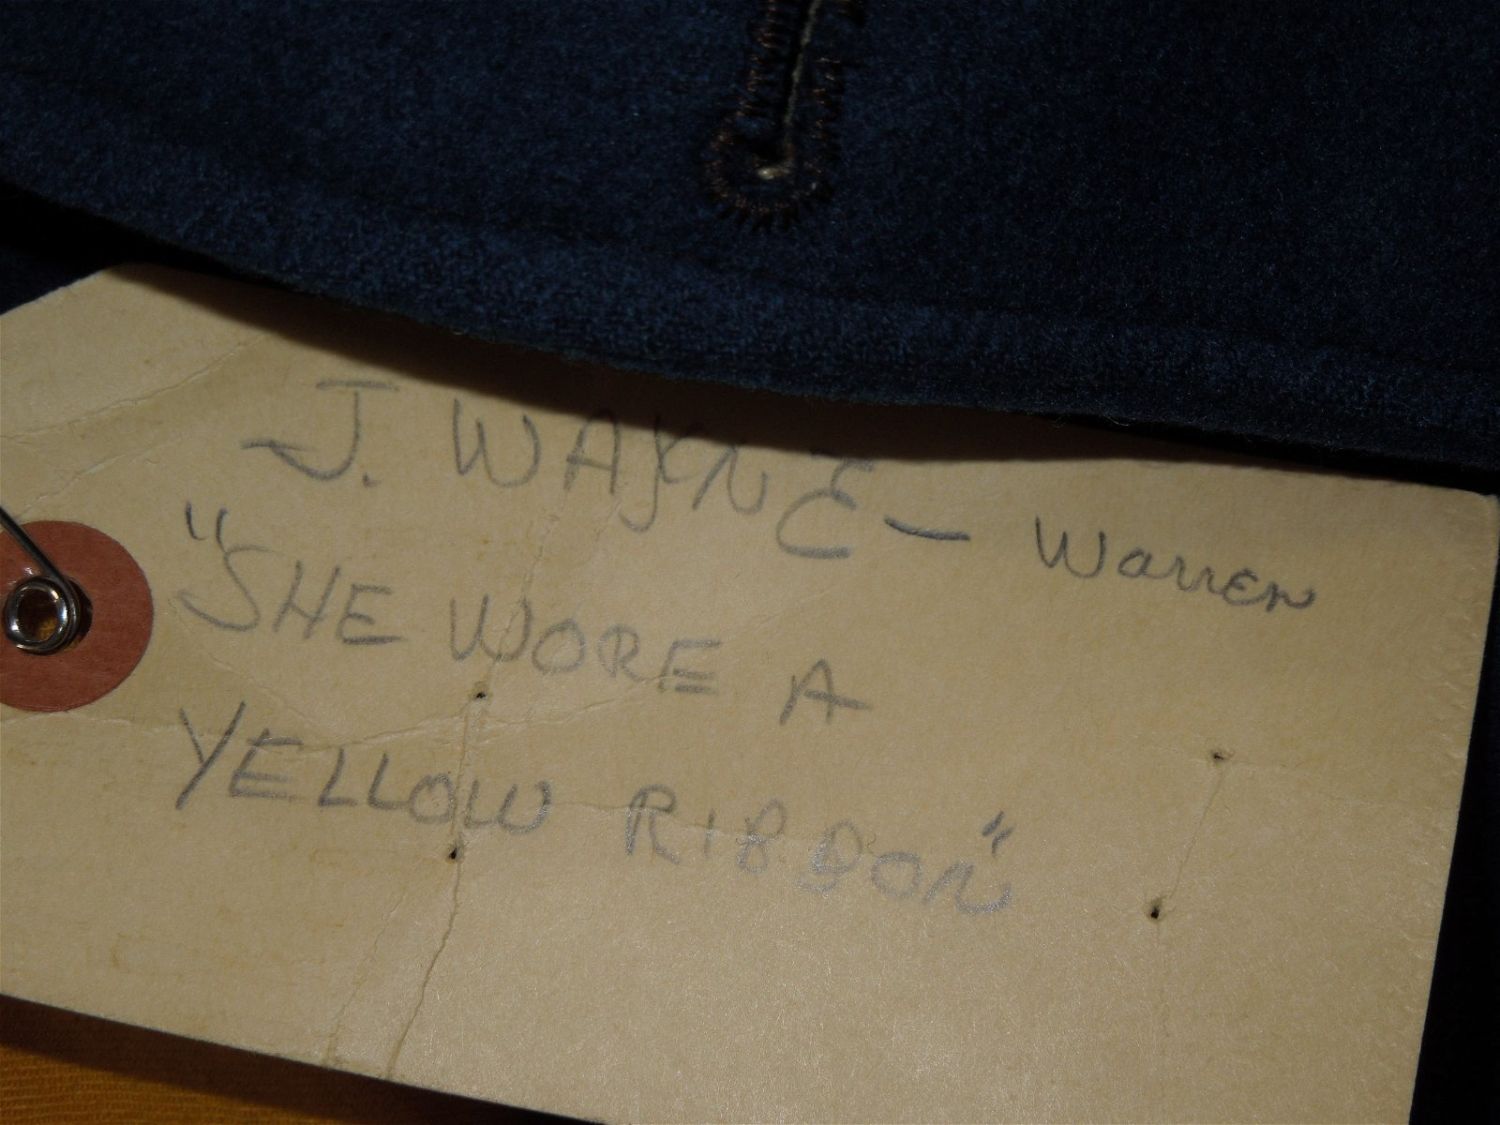 J. WAYNE - Warren
"SHE WORE A
YELLOW RIBBON"